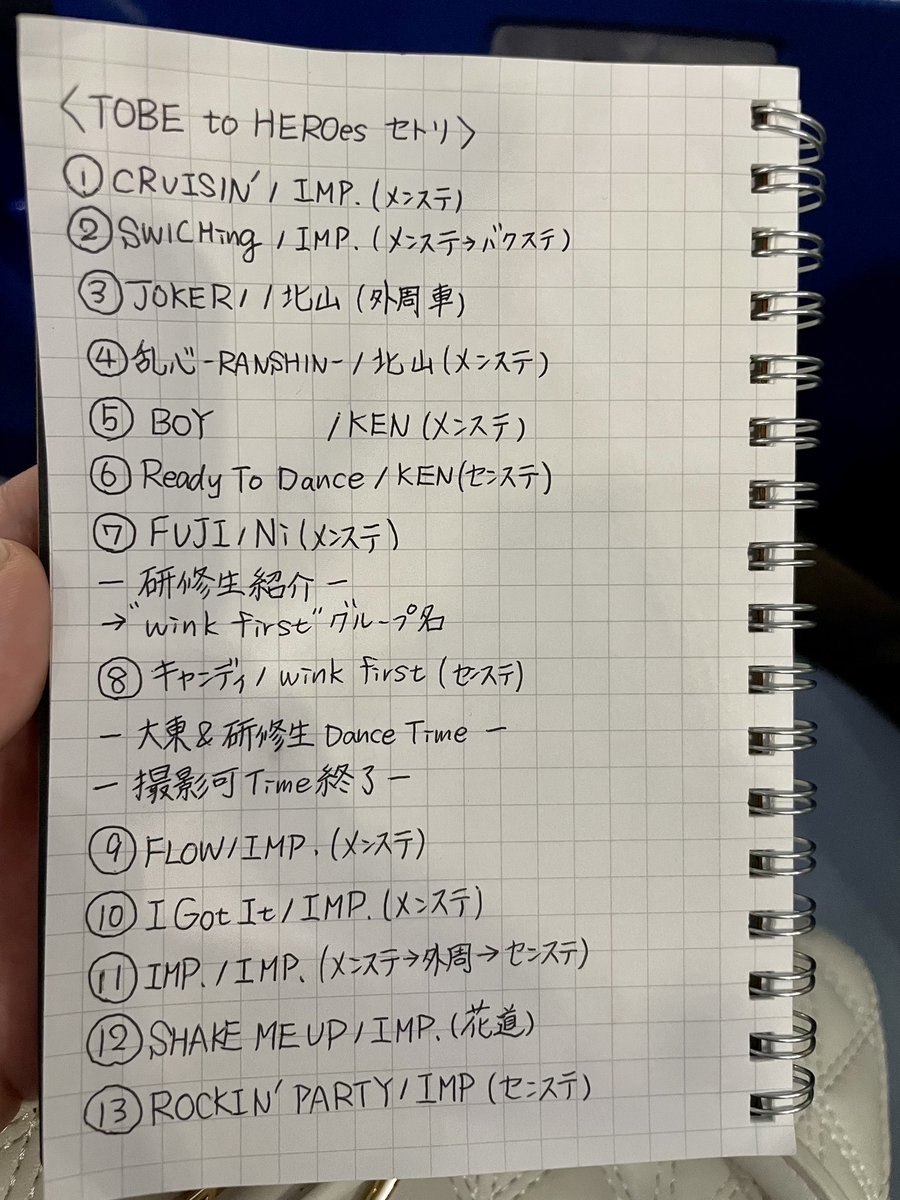 <TOBE to HEROes セトリ>
① CRUISIN' / IMP. (メンステ)
② SWICHing / IMP. (メンステ→バクステ)
③ JOKER/ / 北山 (外周車)
④ 乱心-RANSHIN- / 北山 (メンステ)
⑤ BOY / KEN (メンステ)
⑥ Ready To Dance / KEN (センステ)
⑦ FUJI / Ni (メンステ)
― 研修生紹介 ―
→"wink first" グループ名
⑧ キャンディ / wink first (センステ)
― 大東&研修生 Dance Time ―
― 撮影可Time終了 ―
⑨ FLOW / IMP. (メンステ)
⑩ I Got It / IMP. (メンステ)
⑪ IMP. / IMP. (メンステ→外周→センステ)
⑫ SHAKE ME UP / IMP. (花道)
⑬ ROCKIN' PARTY / IMP (センステ)